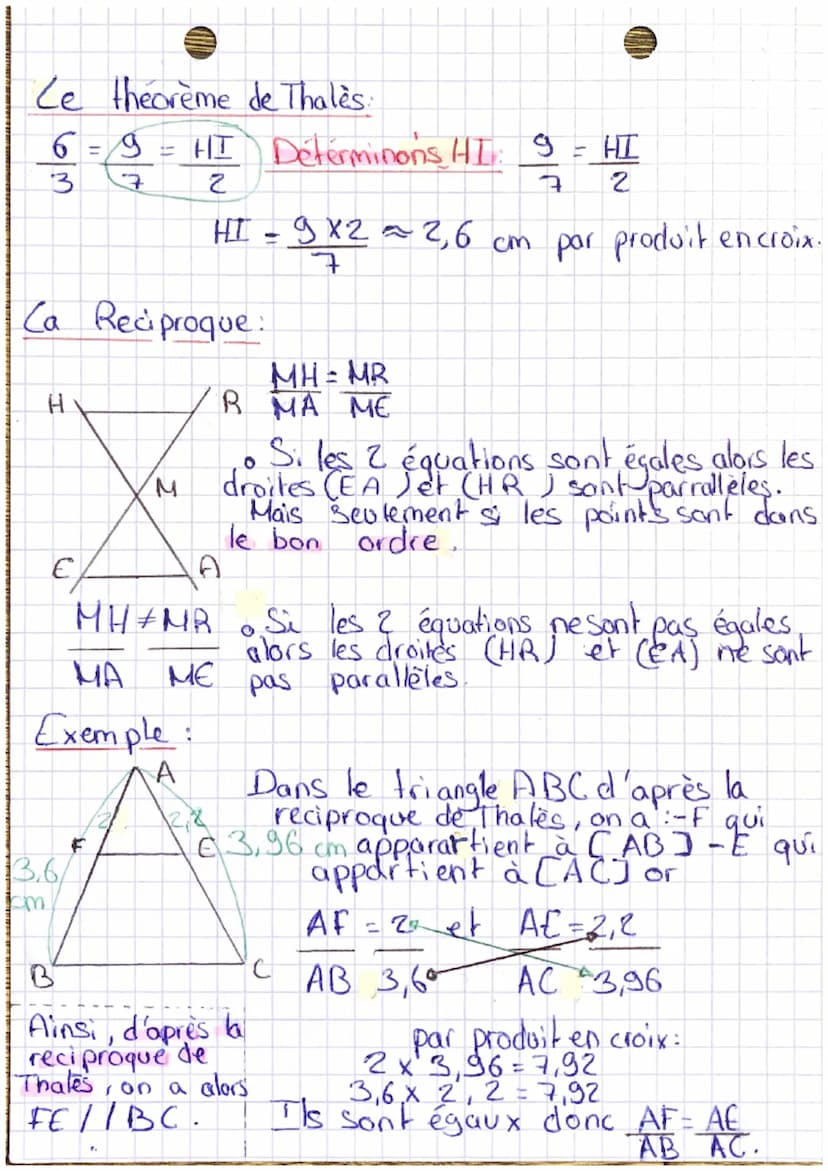 Le théorème de Thalès:
6/3 = 9/7 = HI/2 Déterminons HI: 9/7 = HI/2
HI = 9 x 2/7 ≈ 2,6 cm par produit en croix.
La Reciproque:
MH/MA = MR/ME
H R
M
E A
• Si les 2 équations sont égales alors les
droites (EA) et (HR) sont parrallèles.
Mais seulement si les points sont dans
le bon ordre.
MH/MA ≠ MR/ME
• Si les 2 équations ne sont pas égales
alors les droites (HR) et (EA) ne sont
pas parallèles.
Exemple:
A
2 2,2
F E 3,96 cm
3,6
cm
B C
Dans le triangle ABC d'après la
reciproque de Thalès, on a :-F qui
apparartient à [AB] -E qui
appartient à [AC] or
AF/AB = 2/3,6 et AE/AC = 2,2/3,96
par produit en croix:
2 x 3,96 = 7,92
3,6 x 2,2 = 7,92
Ils sont égaux donc AF/AB = AE/AC.
Ainsi, d'après la
reciproque de
Thalès, on a alors
FE//BC.